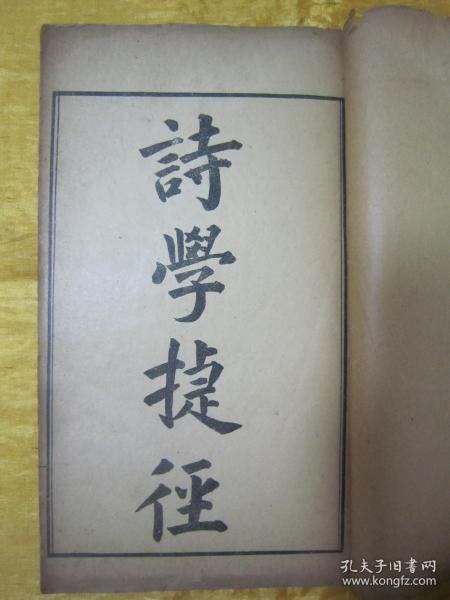 詩學捷徑
孔夫子旧书网
www.kongfz.com